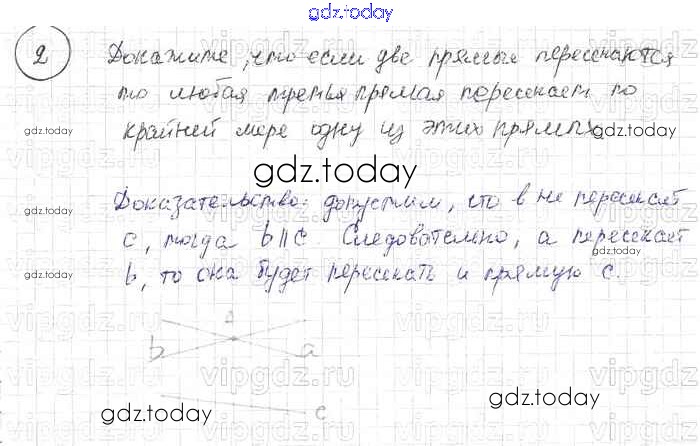 gdz.today
2 Докажите, что если две прямые пересекаются
то любая третья прямая пересекает по
gdz.today
крайней мере одну из этих прямых.
gdz.today
gdz.today
gdz.today
Доказательство: допустим, что b не пересекает
gdz.today
c, тогда b || c. Следовательно, a пересекает
gdz.today
vipgdz.ru
b, то она будет пересекать и прямую c.
gdz.today
vipgdz.ru
b a
vipgdz.ru
gdz.today
c
gdz.today
gdz.today